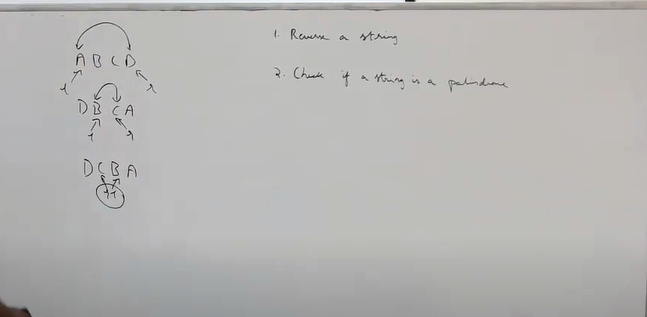 A B C D
D B C A
D C B A
1. Reverse a string
2. Check if a string is a palindrome